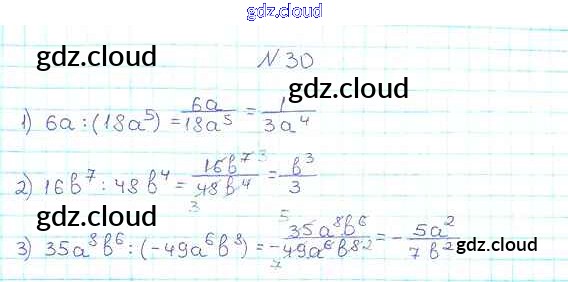 gdz.cloud
gdz.cloud
№ 30
gdz.cloud
1) 6a : (18a⁵) = 6a/18a⁵ = 1/3a⁴
2) 16b⁷ : 48b⁴ = 16b⁷ ³/48b⁴ 3 = b³/3
gdz.cloud
3) 35a⁸b⁶ : (-49a⁶b⁸) = 5 35a⁸b⁶/-49a⁶b⁸ 2 7 = - 5a²/7b²
gdz.cloud